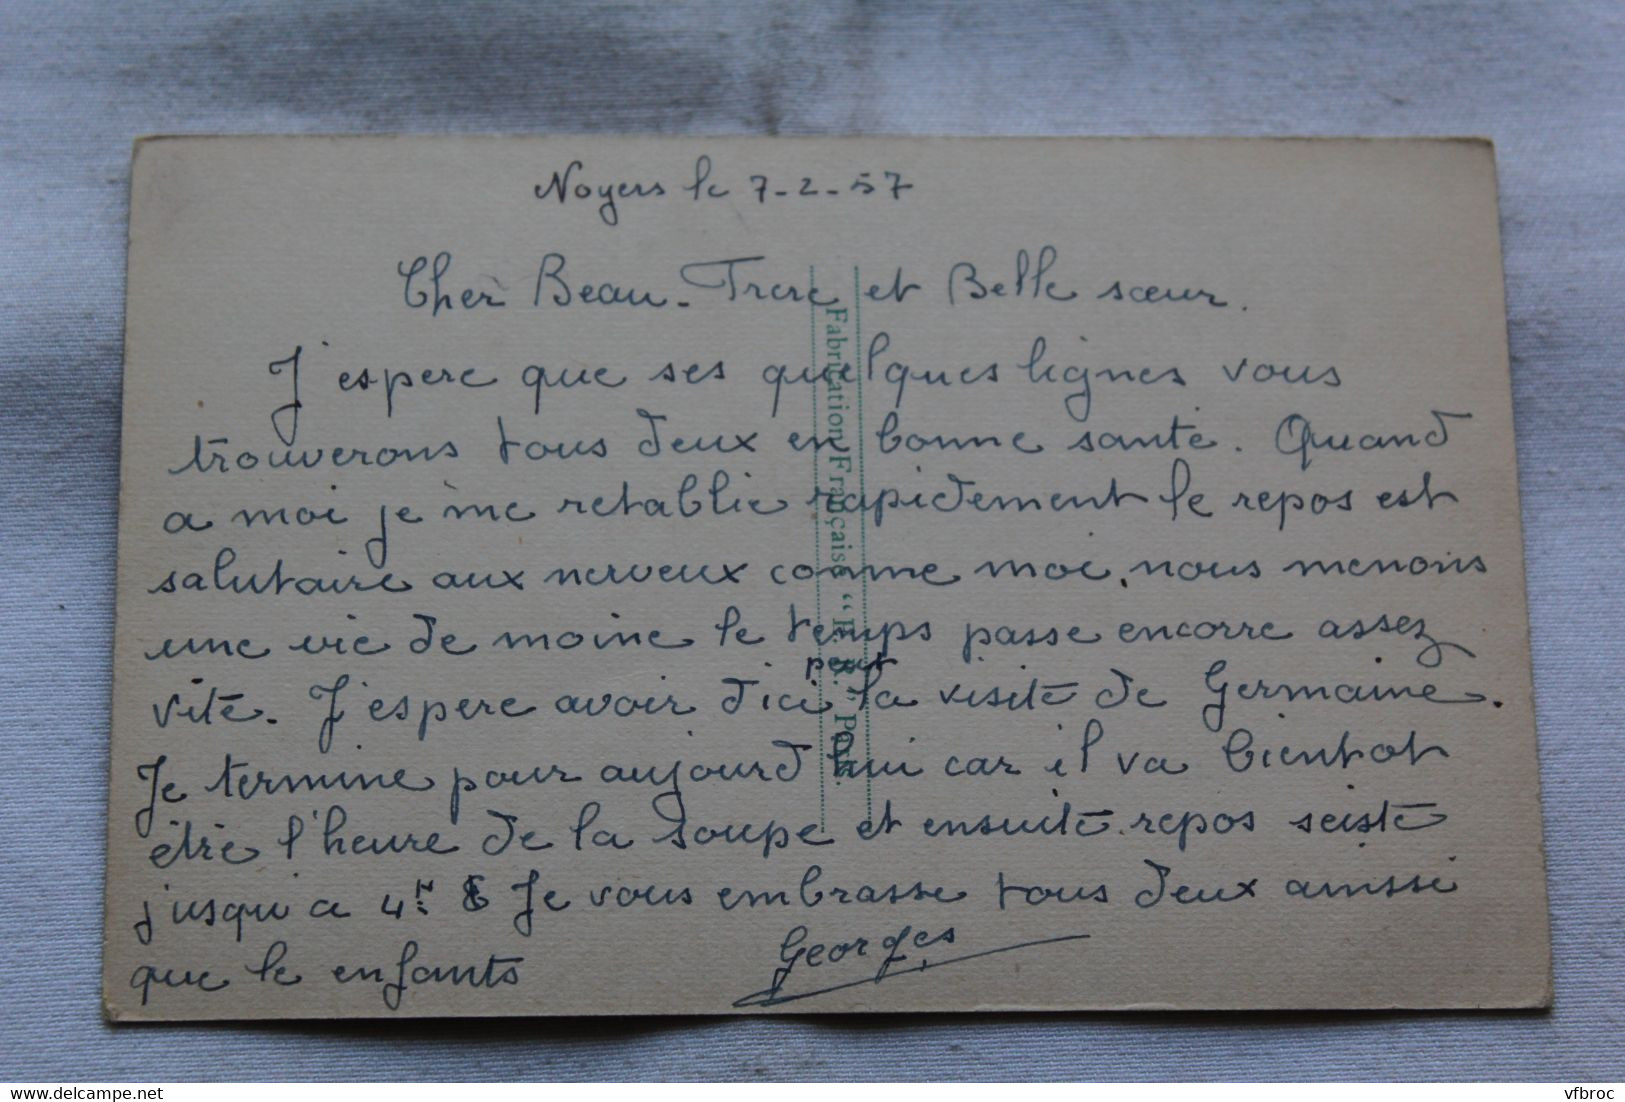 Noyers le 7-2-57
Cher Beau-Frere et Belle sœur.
J'espere que ses quelques lignes vous
trouverons tous deux en bonne santé. Quand
a moi je me retablie rapidement le repos est
salutaire aux nerveux comme moi, nous menons
une vie de moine le temps passe encorre assez
vite. J'espere avoir d'ici peut la visite de Germaine.
Je termine pour aujourd'hui car il va bientot
être l'heure de la soupe et ensuite repos seiste
jusqu'a 4H Je vous embrasse tous deux ainssi
que le enfants
Georges
Fabrication Française "E. R." Paris.
delcampe.net
vfbroc